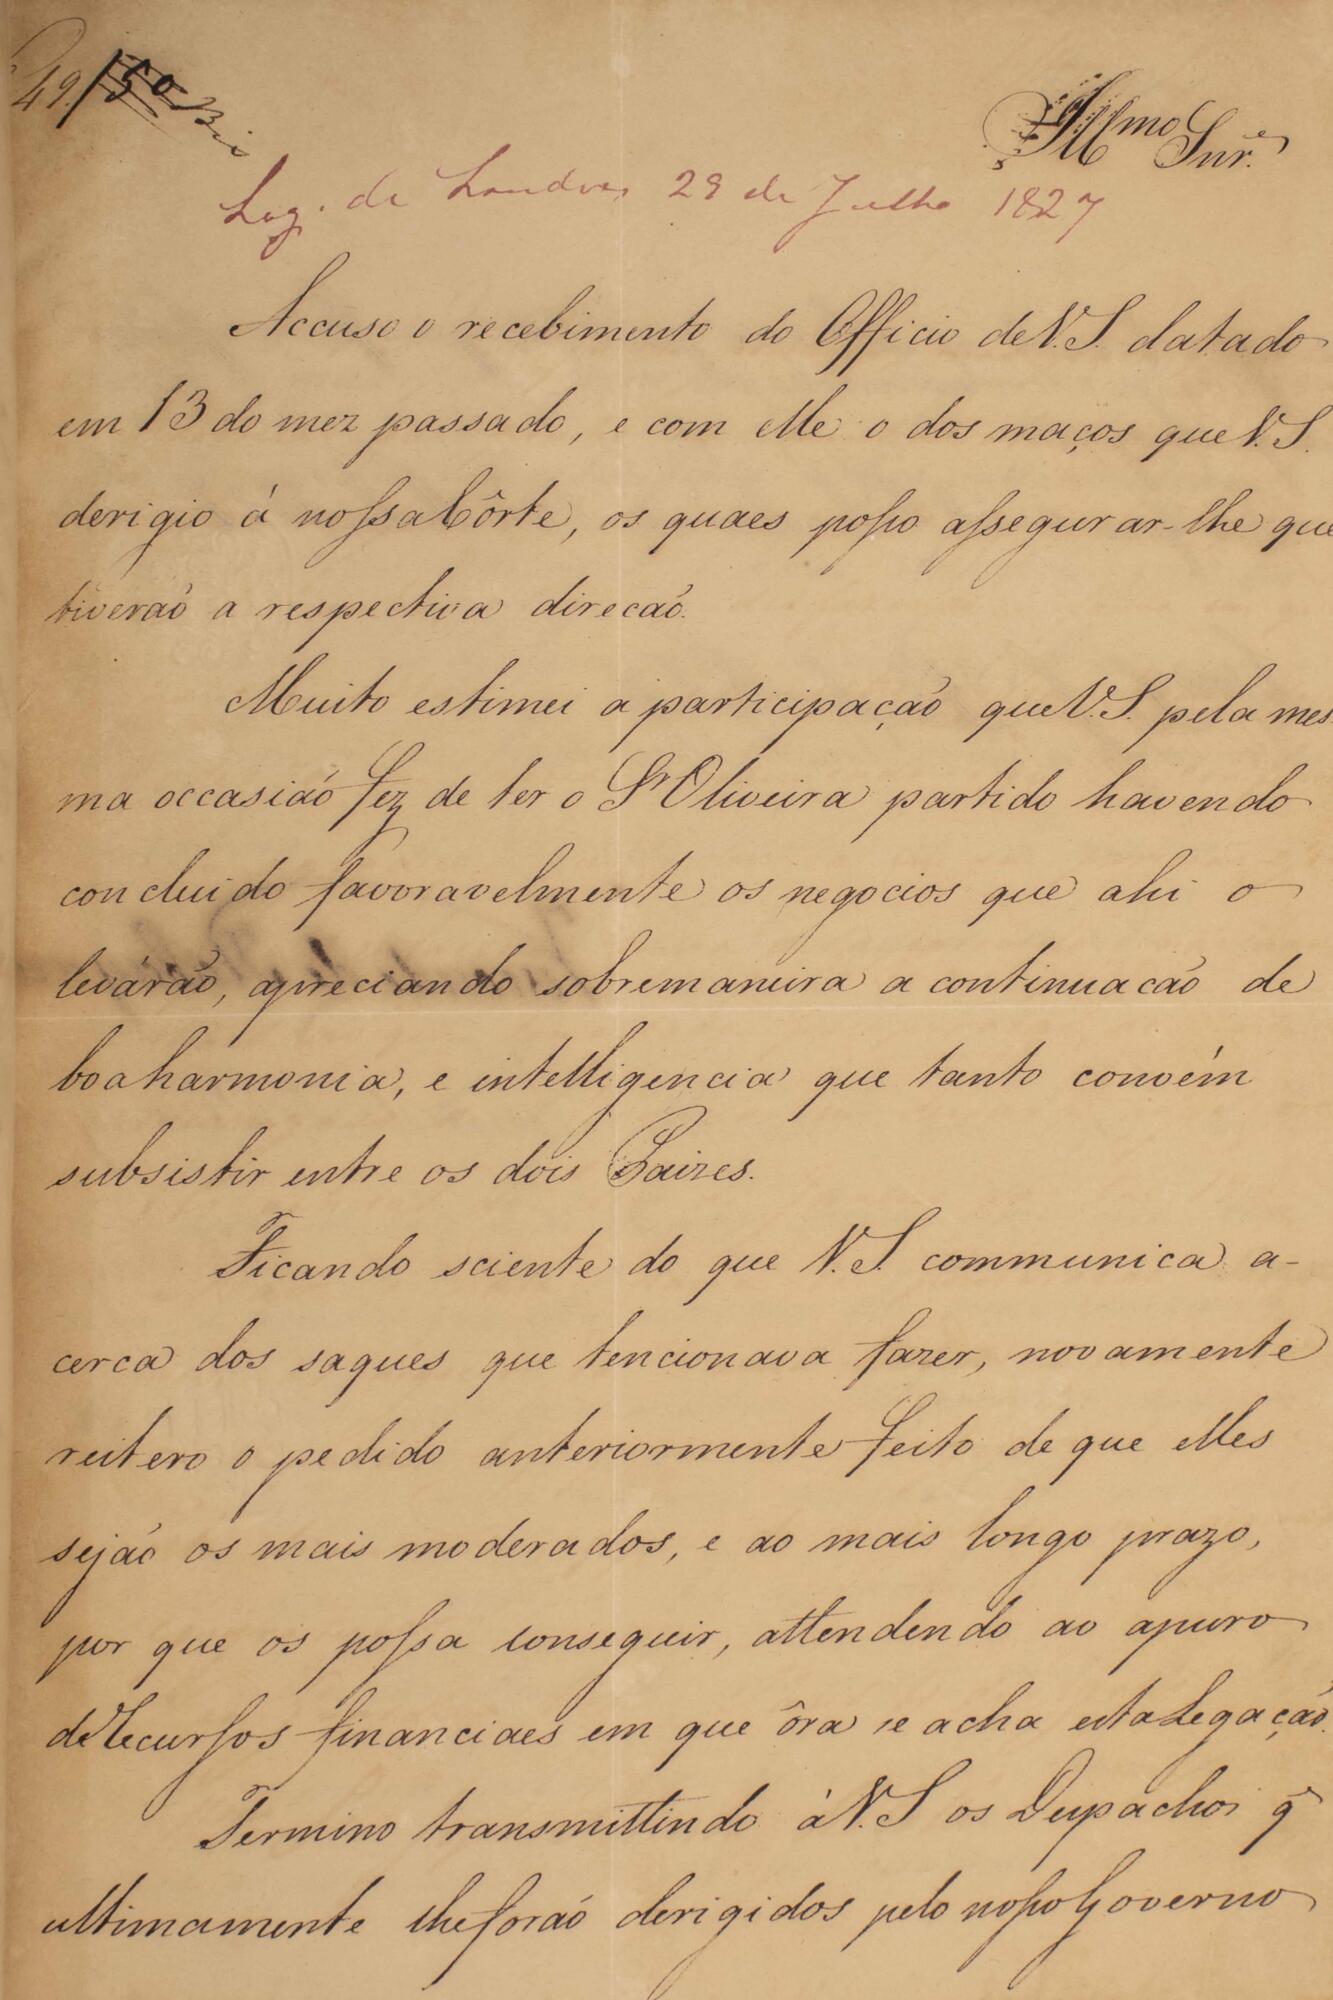 49/50
Illmo Snr.
Leg. de Londres 29 de Julho 1827
Accuso o recebimento do Officio de V.S. datado
em 13 do mez passado, e com elle o dos maços que V.S.
derigio á nossa Côrte, os quaes posso assegurar-lhe que
tiverão a respectiva direcão.
Muito estimei a participação que V.S. pela mes-
ma occasião fez de ter o Sr Oliveira partido havendo
concluido favoravelmente os negocios que ahi o
levárão, apreciando sobremaneira a continuacão de
boa harmonia, e intelligencia que tanto convém
subsistir entre os dois Paizes.
Ficando sciente do que V.S. communica a-
cerca dos saques que tencionava fazer, novamente
reitero o pedido anteriormente feito de que elles
sejão os mais moderados, e ao mais longo prazo,
por que os possa conseguir, attendendo ao apuro
de recursos financiaes em que ôra se acha esta Legação.
Termino transmittindo à V.S os Despachos q̃
ultimamente lhe forão derigidos pelo nosso Governo